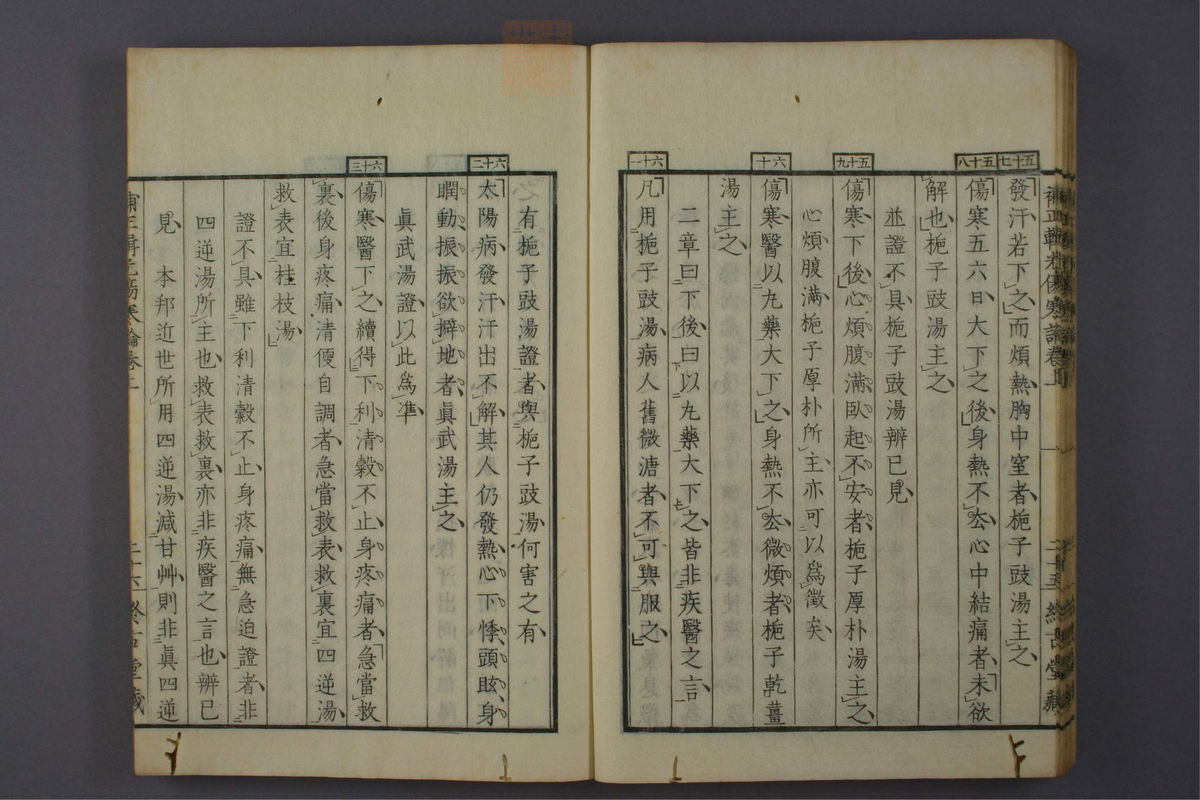 五十七
發汗若下之而煩熱胸中窒者梔子豉湯主之
五十八
傷寒五六日大下之後身熱不去心中結痛者未欲
解也梔子豉湯主之
並證不具梔子豉湯辨已見
五十九
傷寒下後心煩腹滿臥起不安者梔子厚朴湯主之
心煩腹滿梔子厚朴所主亦可以爲徵矣
六十
傷寒醫以丸藥大下之身熱不去微煩者梔子乾薑
湯主之
二章曰下後曰以丸藥大下之皆非疾醫之言
六十一
凡用梔子豉湯病人舊微溏者不可與服之
有梔子豉湯證者與梔子豉湯何害之有
六十二
太陽病發汗汗出不解其人仍發熱心下悸頭眩身
瞤動振振欲擗地者眞武湯主之
眞武湯證以此爲準
六十三
傷寒醫下之續得下利清穀不止身疼痛者急當救
裏後身疼痛清便自調者急當救表救裏宜四逆湯
救表宜桂枝湯
證不具雖下利清穀不止身疼痛無急迫證者非
四逆湯所主也救表救裏亦非疾醫之言也辨已
見 本邦近世所用四逆湯減甘艸則非眞四逆